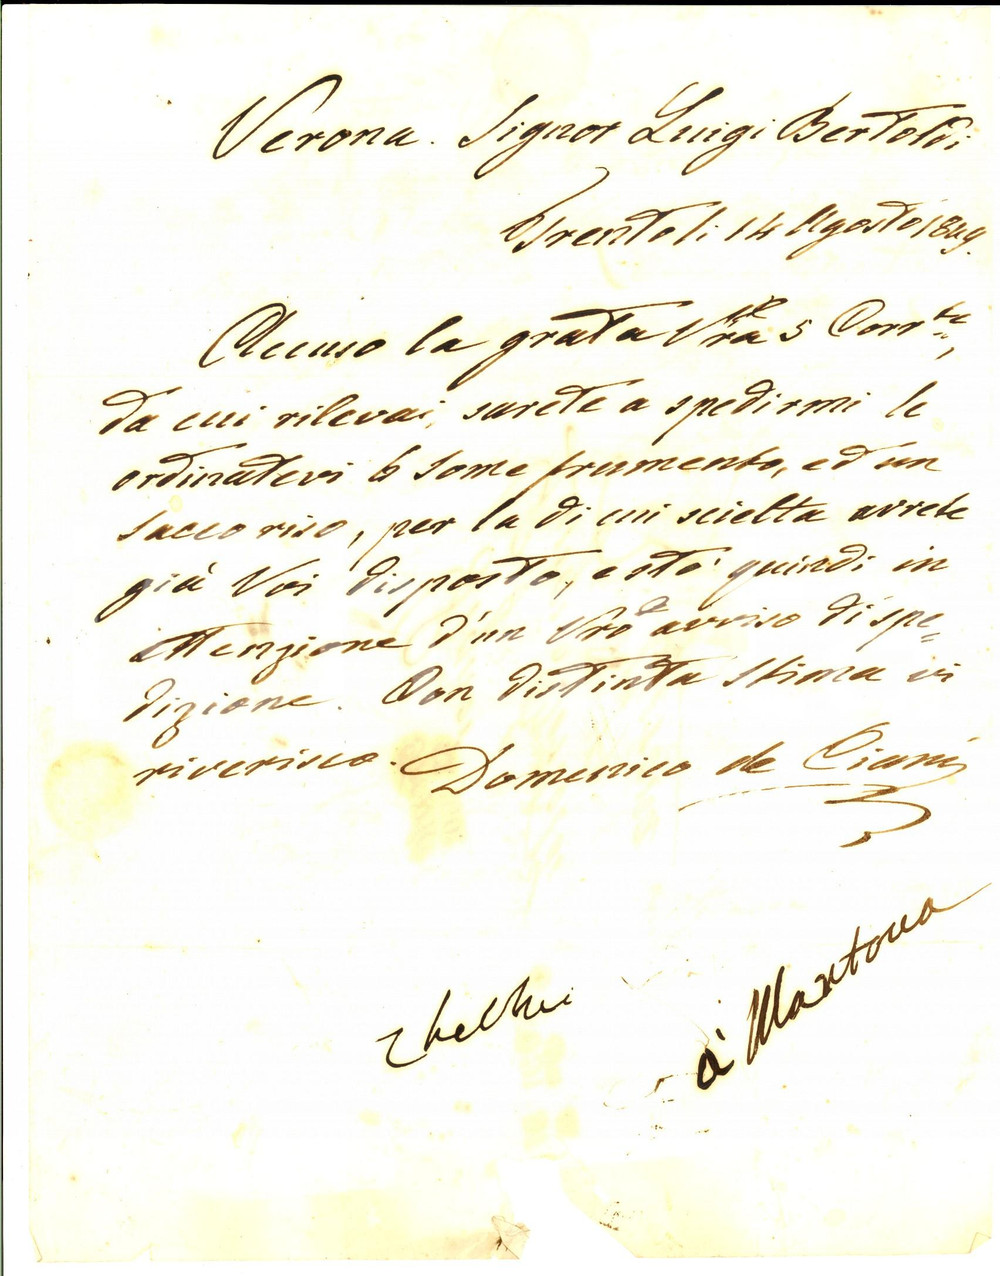 Verona. Signor Luigi Bertoldi
14 Agosto 1849.
Accuso la grata Vra 5 Corrte,
da cui rilevai, sarete a spedirmi le
ordinatevi 6 some frumento, ed un
sacco riso, per la di cui scielta avrete
già Voi disposto, e stò quindi in
attenzione d'un Vro avviso di spe=
dizione. Con distinta stima vi
riverisco. Domenico de Ciani
à Mantova